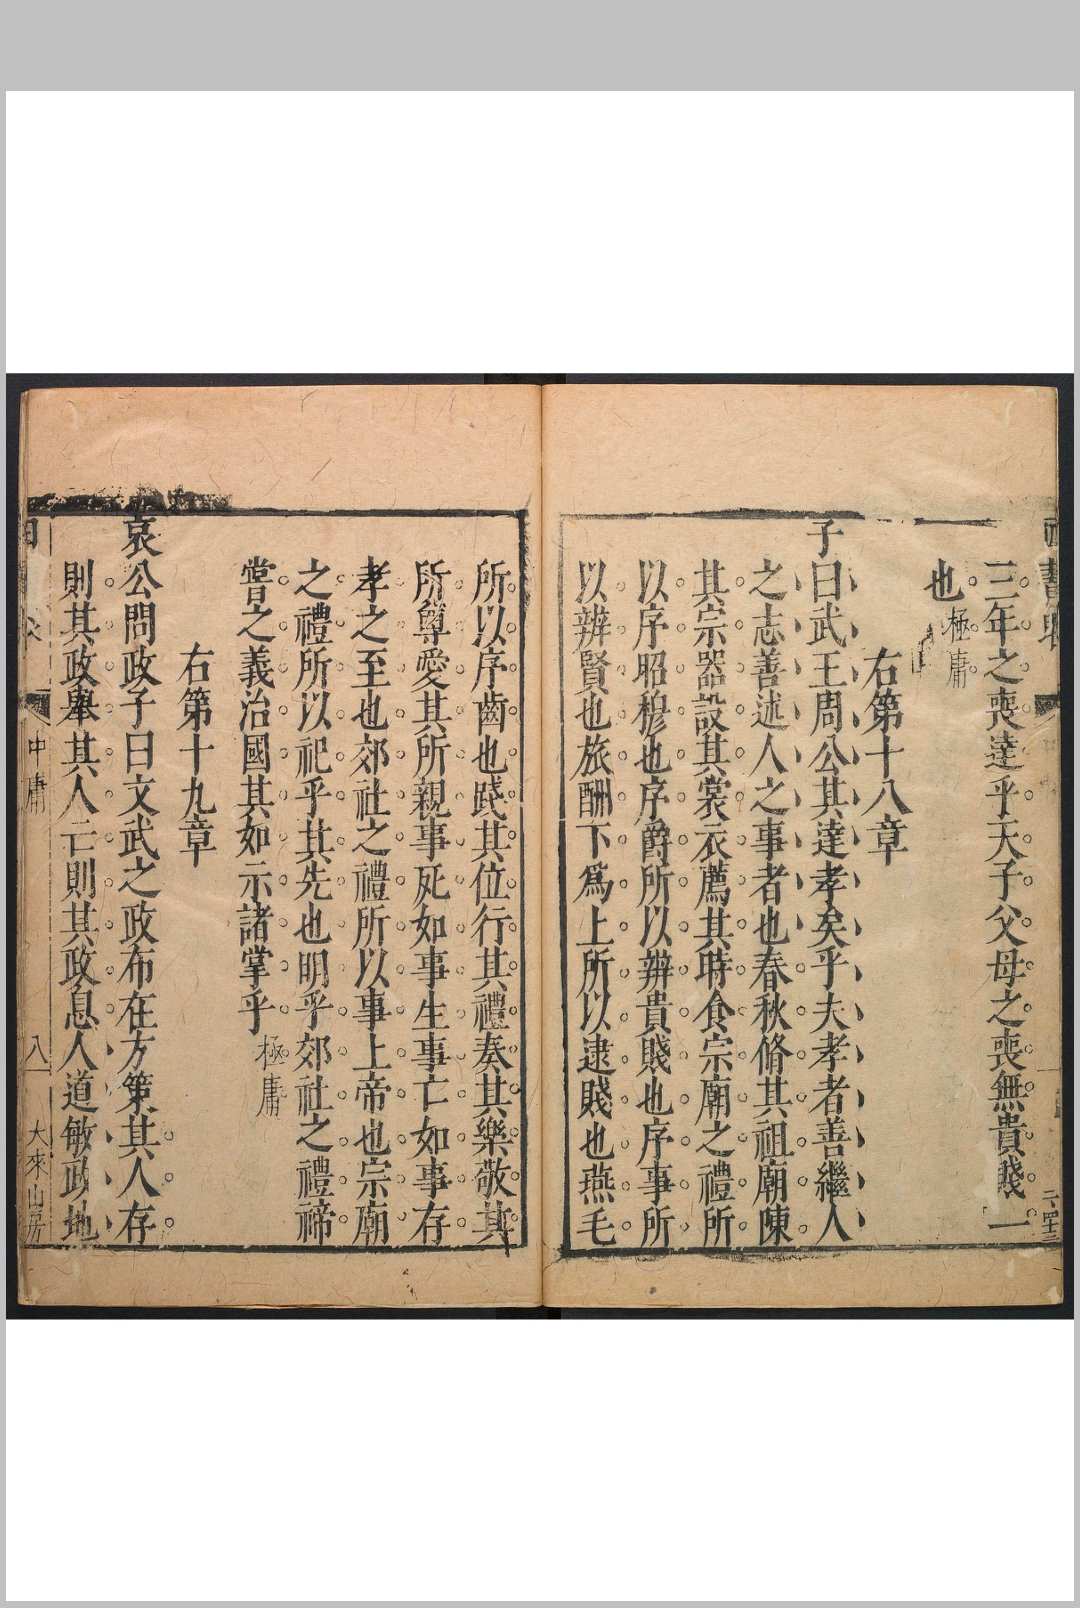 三年之喪達乎天子父母之喪無貴賤一
也 極庸
右第十八章
子曰武王周公其達孝矣乎夫孝者善繼人
之志善述人之事者也春秋脩其祖廟陳
其宗器設其裳衣薦其時食宗廟之禮所
以序昭穆也序爵所以辨貴賤也序事所
以辨賢也旅酬下爲上所以逮賤也燕毛
所以序齒也踐其位行其禮奏其樂敬其
所尊愛其所親事死如事生事亡如事存
孝之至也郊社之禮所以事上帝也宗廟
之禮所以祀乎其先也明乎郊社之禮禘
嘗之義治國其如示諸掌乎 極庸
右第十九章
哀公問政子曰文武之政布在方策其人存
則其政舉其人亡則其政息人道敏政地
中庸 八 大來山房